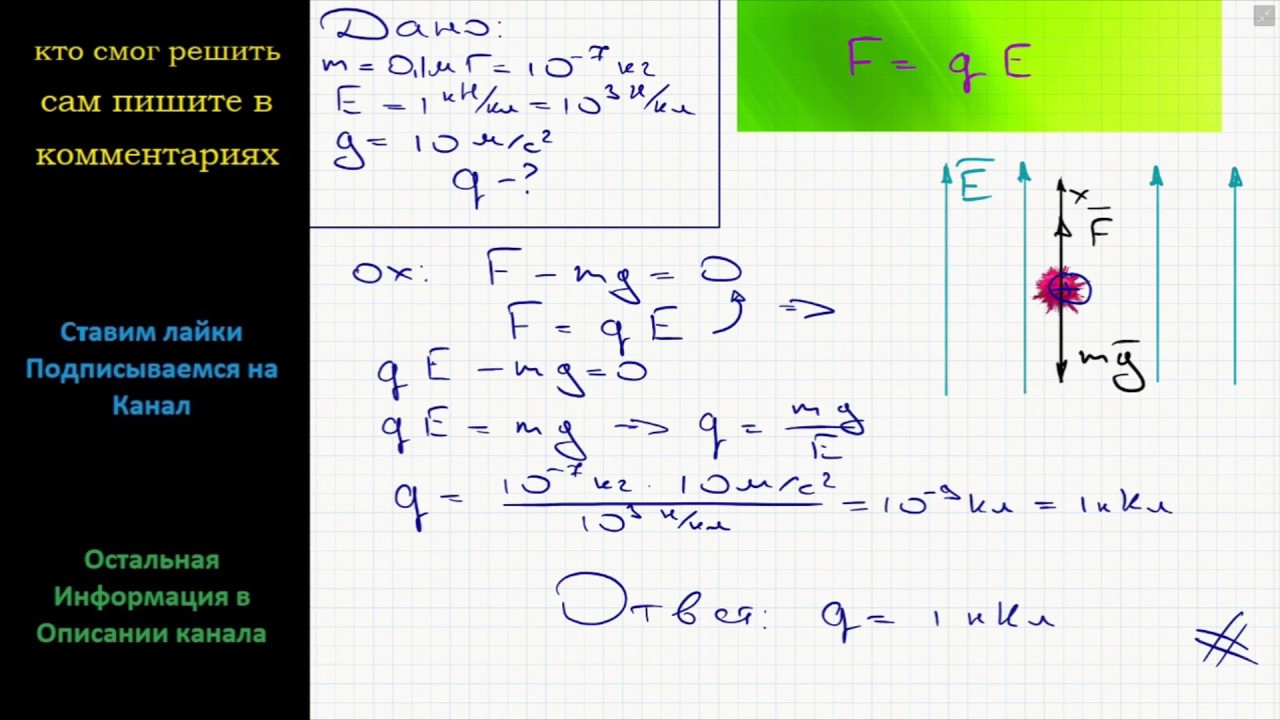 кто смог решить
сам пишите в
комментариях
Ставим лайки
Подписываемся на
Канал
Остальная
Информация в
Описании канала
Дано:
m = 0,1 мг = 10⁻⁷ кг
E = 1 кН/кл = 10³ Н/кл
g = 10 м/с²
q - ?
F = q E
E
x
F
+
mg
ox: F - mg = 0
F = q E =>
q E - mg = 0
q E = mg => q = mg/E
q = 10⁻⁷ кг · 10 м/с² / 10³ Н/кл = 10⁻⁹ кл = 1 нКл
Ответ: q = 1 нКл